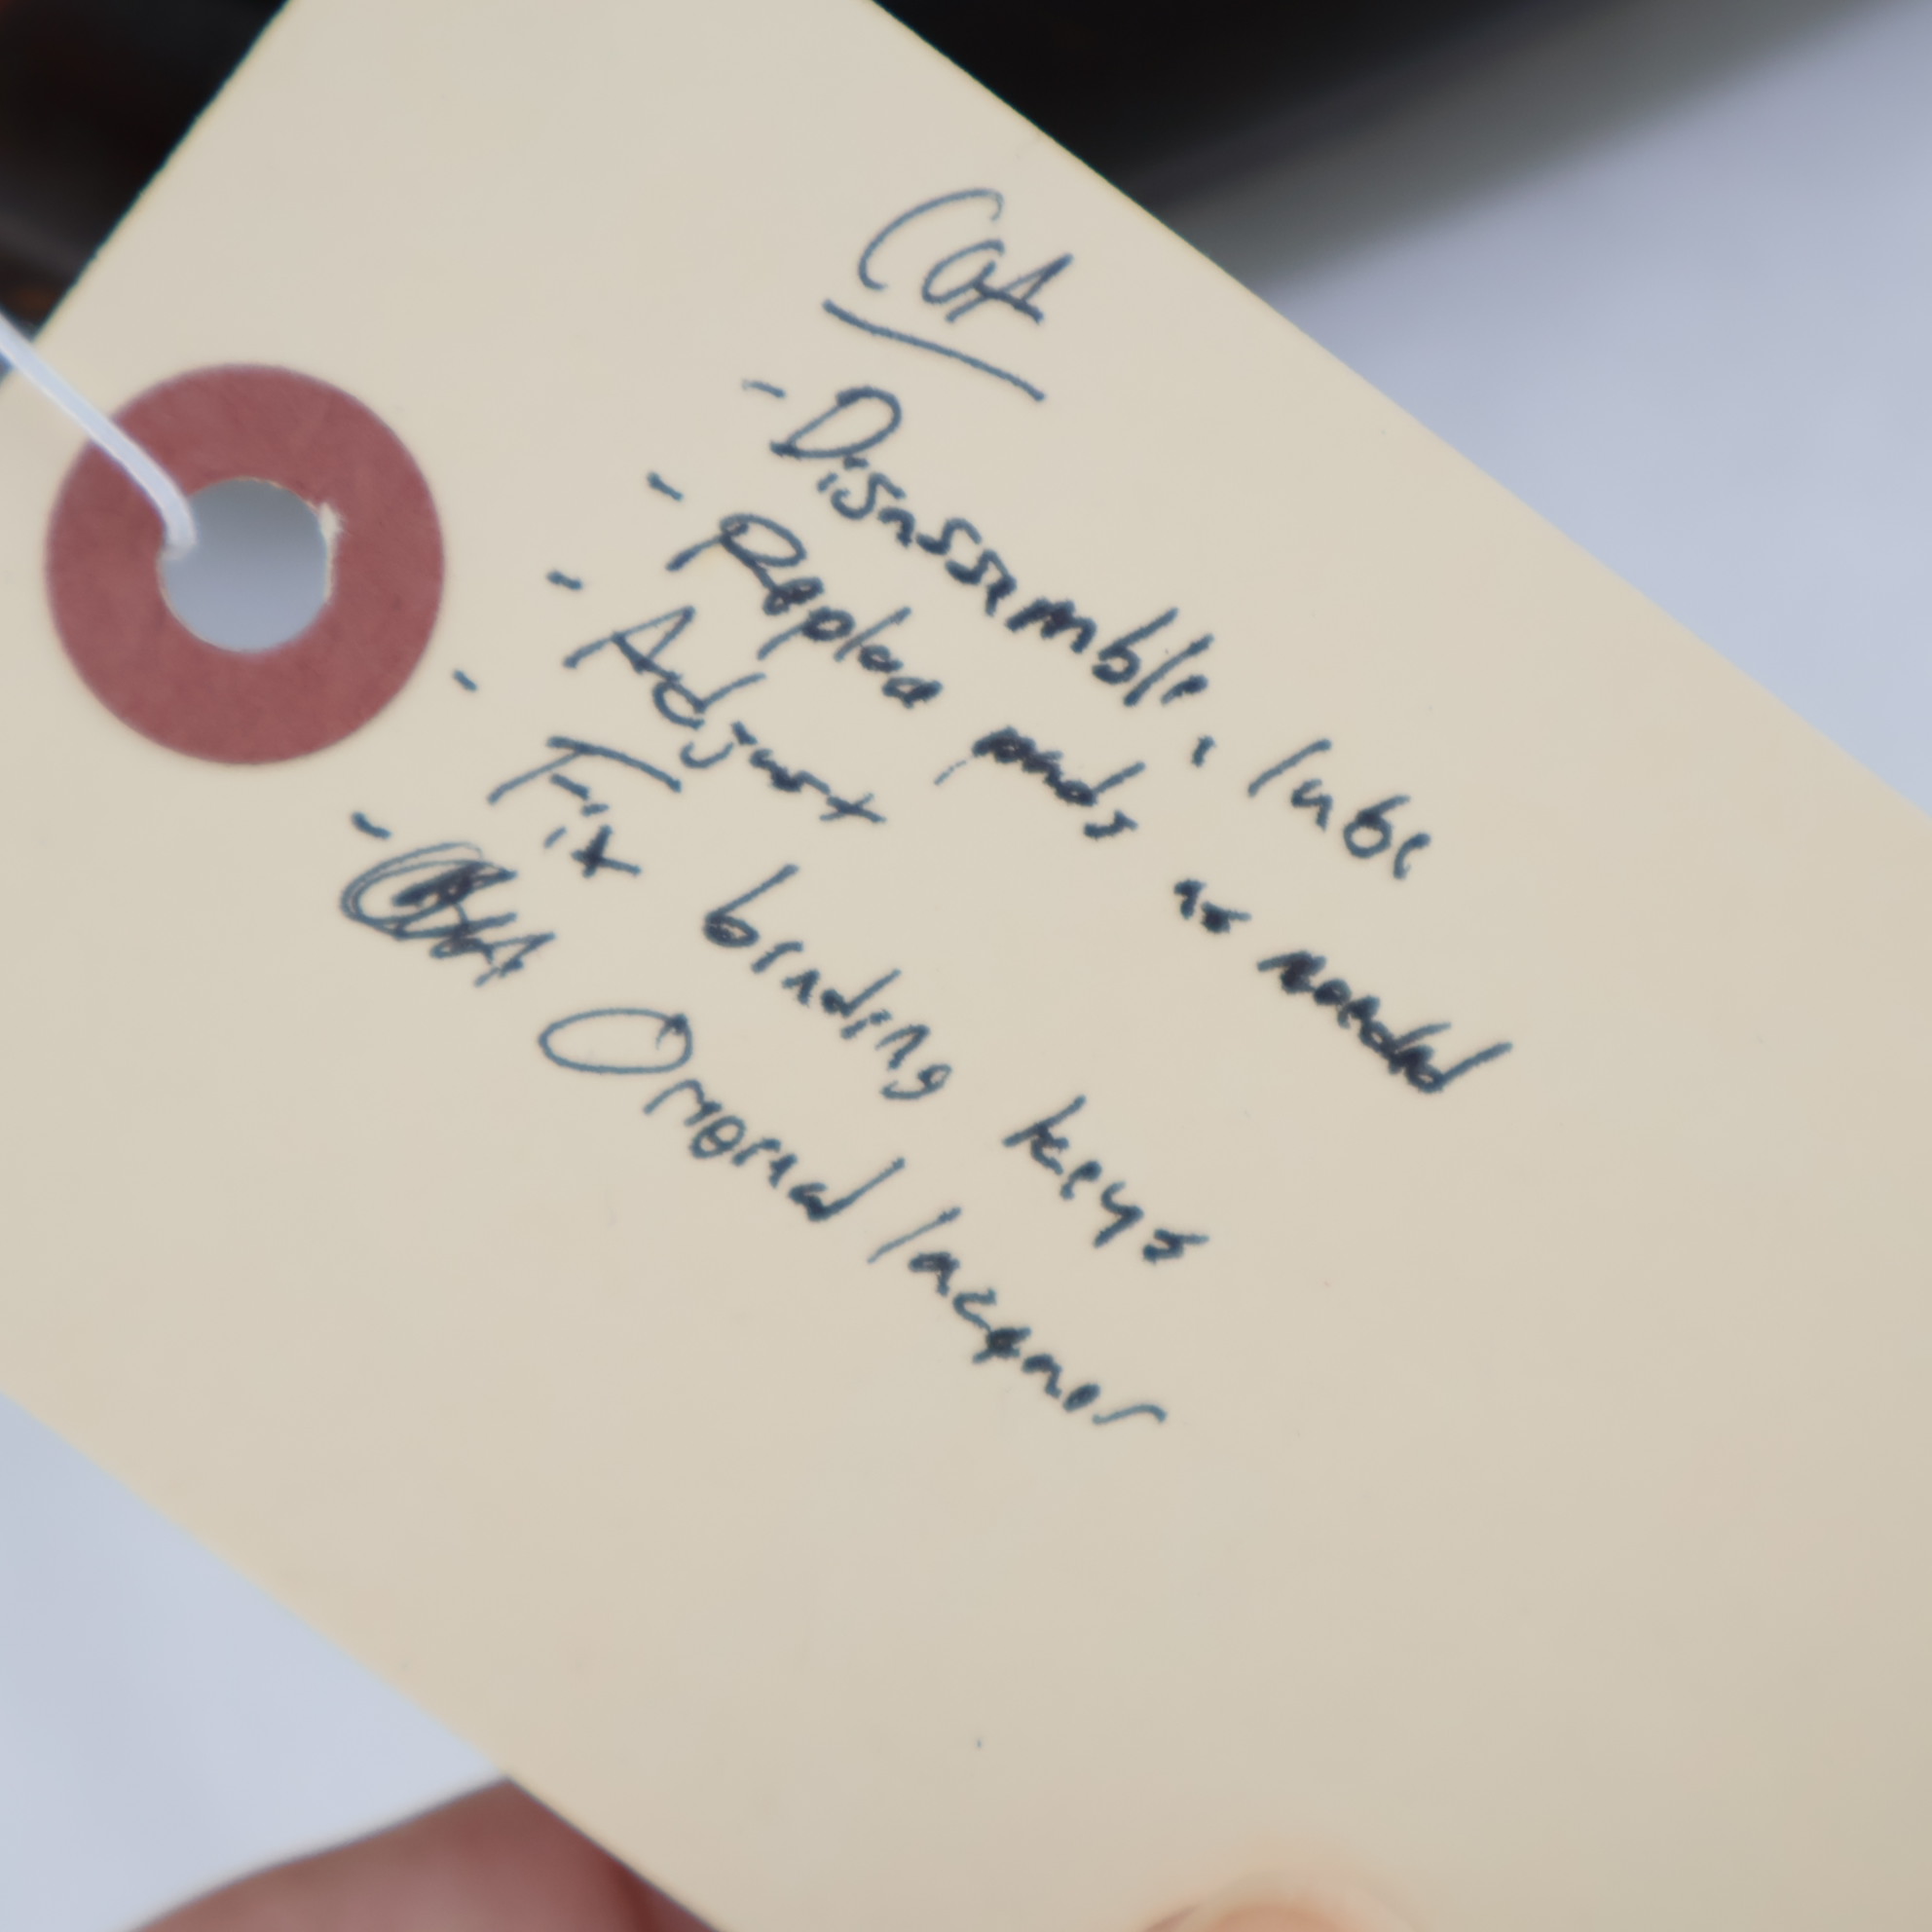 COA
- Disassemble, lube
- Replace pads as needed
- Adjust
- Fix binding keys
- Original lacquer